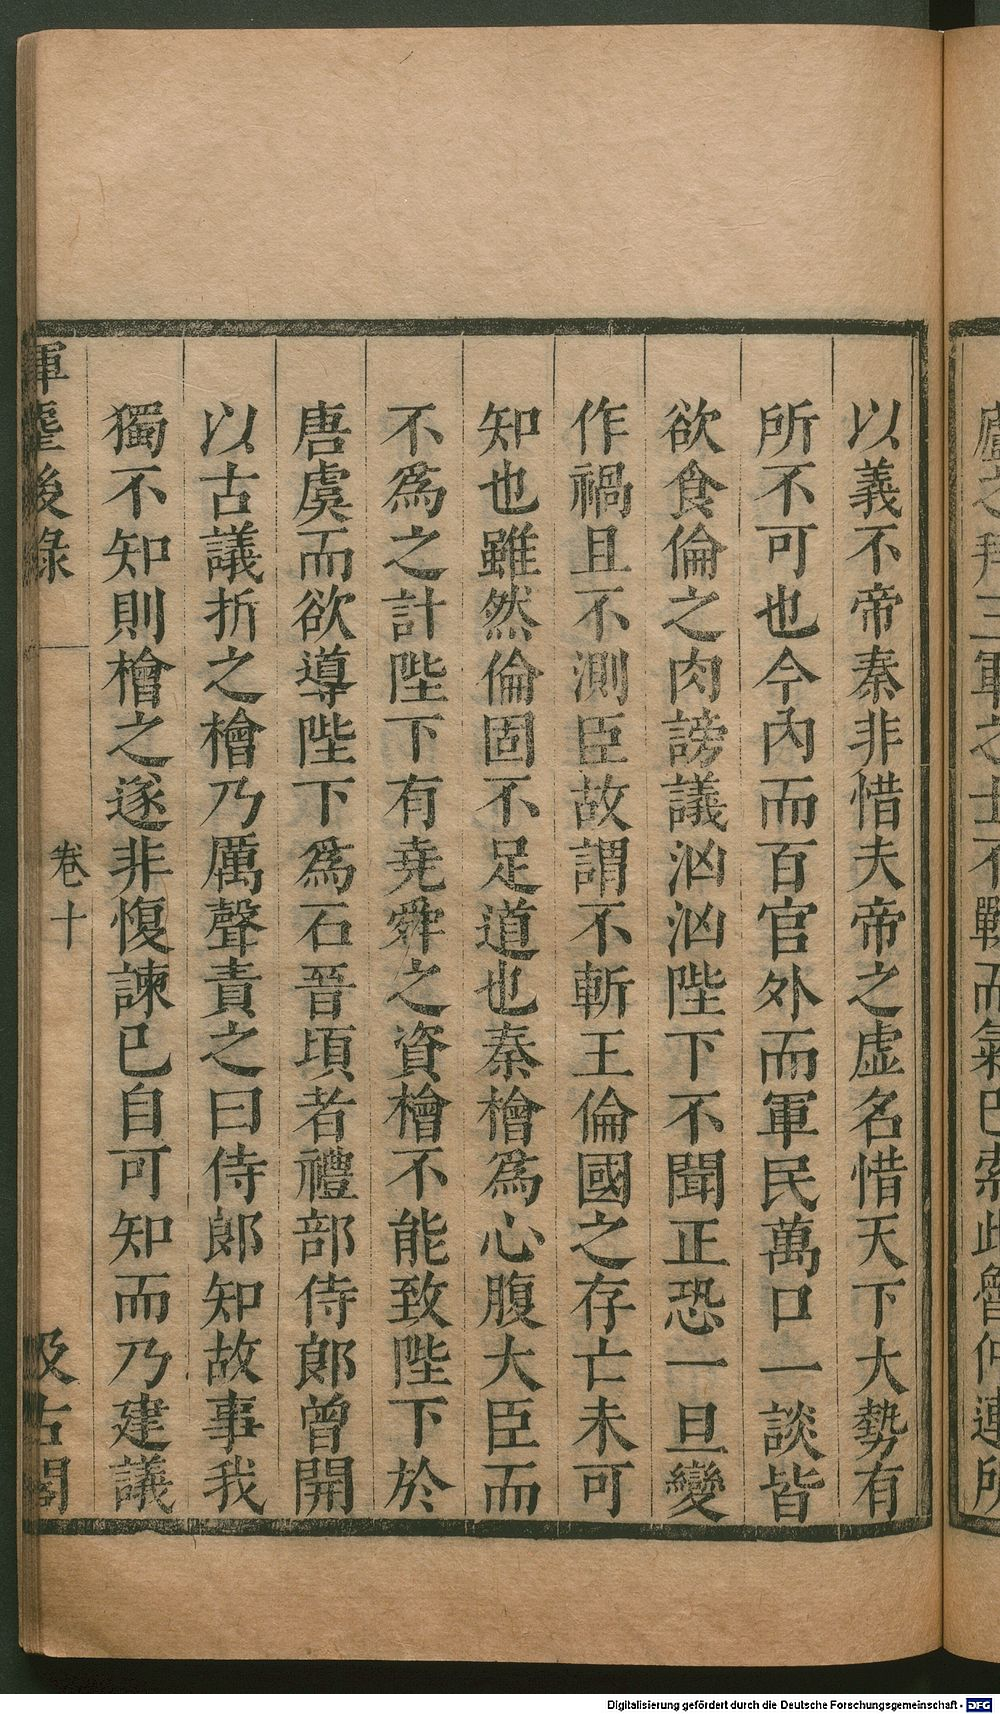 以義不帝秦非惜夫帝之虛名惜天下大勢有
所不可也今內而百官外而軍民萬口一談皆
欲食倫之肉謗議汹汹陛下不聞正恐一旦變
作禍且不測臣故謂不斬王倫國之存亡未可
知也雖然倫固不足道也秦檜爲心腹大臣而
不爲之計陛下有堯舜之資檜不能致陛下於
唐虞而欲導陛下爲石晉頃者禮部侍郎曾開
以古議折之檜乃厲聲責之曰侍郎知故事我
獨不知則檜之遂非愎諫已自可知而乃建議
揮麈後錄
卷十
汲古閣
Digitalisierung gefördert durch die Deutsche Forschungsgemeinschaft - DFG